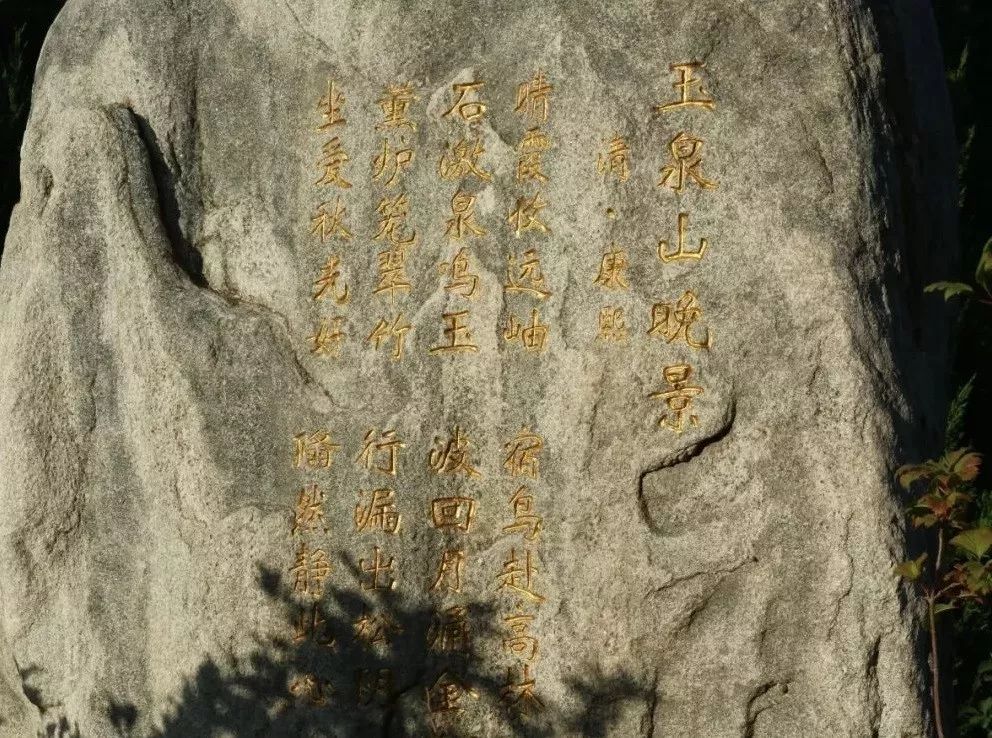 玉泉山晚景
清·康熙
晴霞收远岫 宿鸟赴高林
石激泉鸣玉 波回月涌金
薰炉笼翠竹 行漏出松阴
坐受秋光好 然静此心